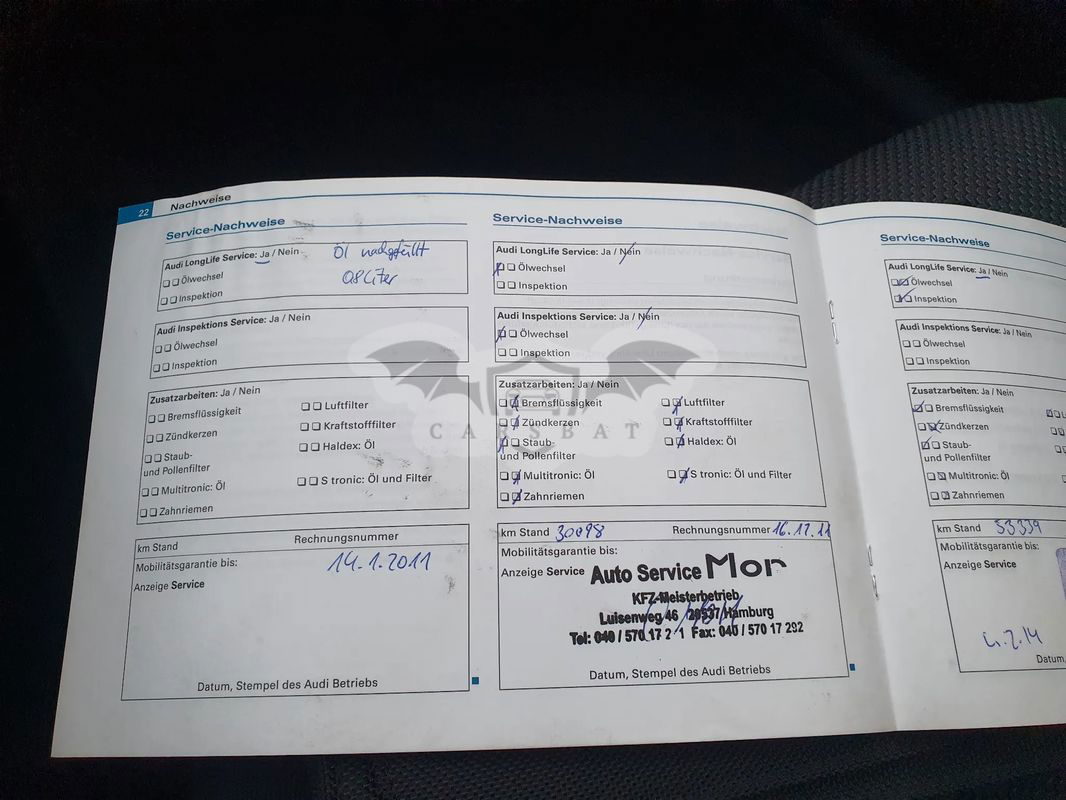 22 Nachweise
Service-Nachweise
Audi LongLife Service: Ja / Nein
Öl nachgefüllt
0,8 Liter
Ölwechsel
Inspektion
Audi Inspektions Service: Ja / Nein
Ölwechsel
Inspektion
Zusatzarbeiten: Ja / Nein
Bremsflüssigkeit
Luftfilter
Zündkerzen
Kraftstofffilter
Staub-
und Pollenfilter
Haldex: Öl
Multitronic: Öl
S tronic: Öl und Filter
Zahnriemen
km Stand
Rechnungsnummer
Mobilitätsgarantie bis:
14.1.2011
Anzeige Service
Datum, Stempel des Audi Betriebs
Service-Nachweise
Audi LongLife Service: Ja / Nein
Ölwechsel
Inspektion
Audi Inspektions Service: Ja / Nein
Ölwechsel
Inspektion
Zusatzarbeiten: Ja / Nein
Bremsflüssigkeit
Luftfilter
Zündkerzen
Kraftstofffilter
Staub-
und Pollenfilter
Haldex: Öl
Multitronic: Öl
S tronic: Öl und Filter
Zahnriemen
km Stand 30098
Rechnungsnummer 16.12.11
Mobilitätsgarantie bis:
Anzeige Service
Auto Service Mor
KFZ-Meisterbetrieb
Luisenweg 46 20537 Hamburg
Tel: 040 / 570 17 2 1 Fax: 040 / 570 17 292
Datum, Stempel des Audi Betriebs
Service-Nachweise
Audi LongLife Service: Ja / Nein
Ölwechsel
Inspektion
Audi Inspektions Service: Ja / Nein
Ölwechsel
Inspektion
Zusatzarbeiten: Ja / Nein
Bremsflüssigkeit
Zündkerzen
Staub-
und Pollenfilter
Multitronic: Öl
Zahnriemen
km Stand 53339
Mobilitätsgarantie bis:
Anzeige Service
4.2.14
Datum,
CARSBAT